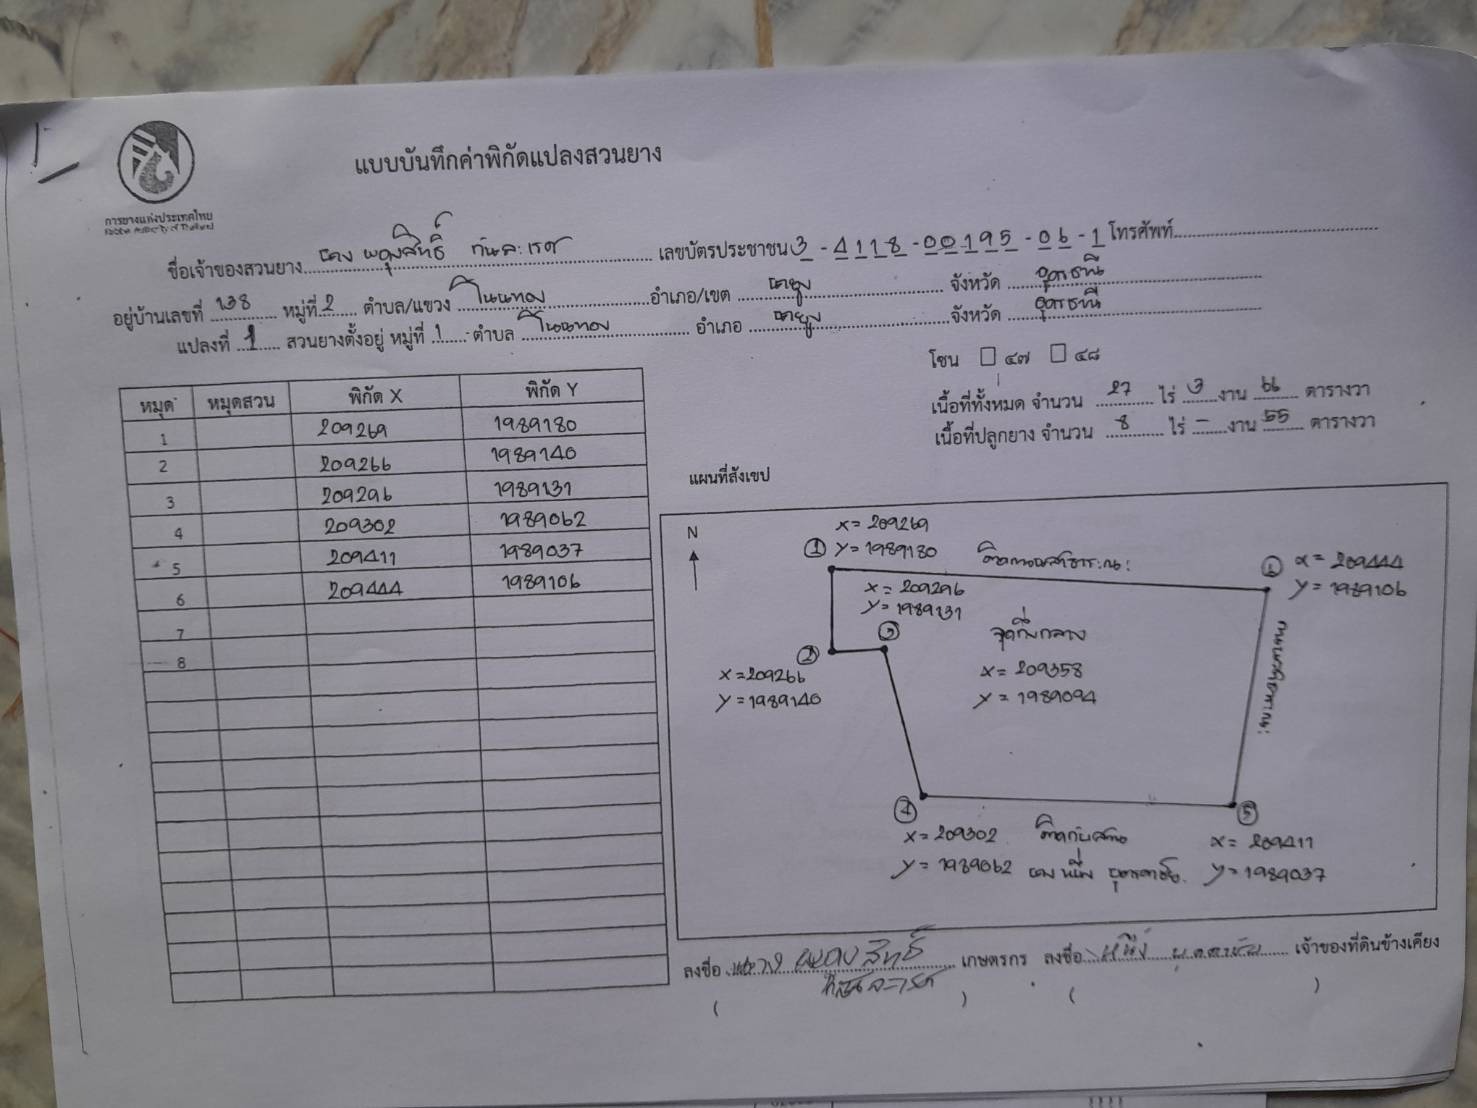 การยางแห่งประเทศไทย
Rubber Authority of Thailand
แบบบันทึกค่าพิกัดแปลงสวนยาง
ชื่อเจ้าของสวนยาง เลขบัตรประชาชน 3-4118-00195-06-1 โทรศัพท์
อยู่บ้านเลขที่ 138 หมู่ที่ 2 ตำบล/แขวง โนนทอง อำเภอ/เขต นายูง จังหวัด อุดรธานี
แปลงที่ 1 สวนยางตั้งอยู่ หมู่ที่ 1 ตำบล โนนทอง อำเภอ นายูง จังหวัด อุดรธานี
โซน ๔๗ ๔๘
เนื้อที่ทั้งหมด จำนวน 27 ไร่ 3 งาน 66 ตารางวา
เนื้อที่ปลูกยาง จำนวน 8 ไร่ - งาน 55 ตารางวา
หมุด หมุดสวน พิกัด X พิกัด Y
1 209269 1989180
2 209266 1989140
3 209296 1989131
4 209302 1989062
5 209411 1989037
6 209444 1989106
7
8
แผนที่สังเขป
N
X = 209269
① Y = 1989180 ติดถนนสาธารณะ
X = 209444
Y = 1989106
X = 209296
Y = 1989131
③
จุดกึ่งกลาง
②
X = 209266
Y = 1989140
X = 209358
Y = 1989094
④ ⑤
X = 209302 ติดกับสวน X = 209411
Y = 1989062 Y = 1989037
ลงชื่อ เกษตรกร ลงชื่อ เจ้าของที่ดินข้างเคียง
( ) ( )